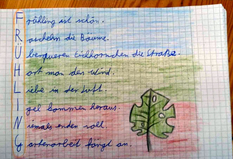 Frühling ist schön.
Rascheln die Bäume.
Überqueren Eichhörnchen die Straße.
Hört man den Wind.
Liebe in der Luft.
Igel kommen heraus.
Niemals enden soll.
Gartenarbeit fängt an.